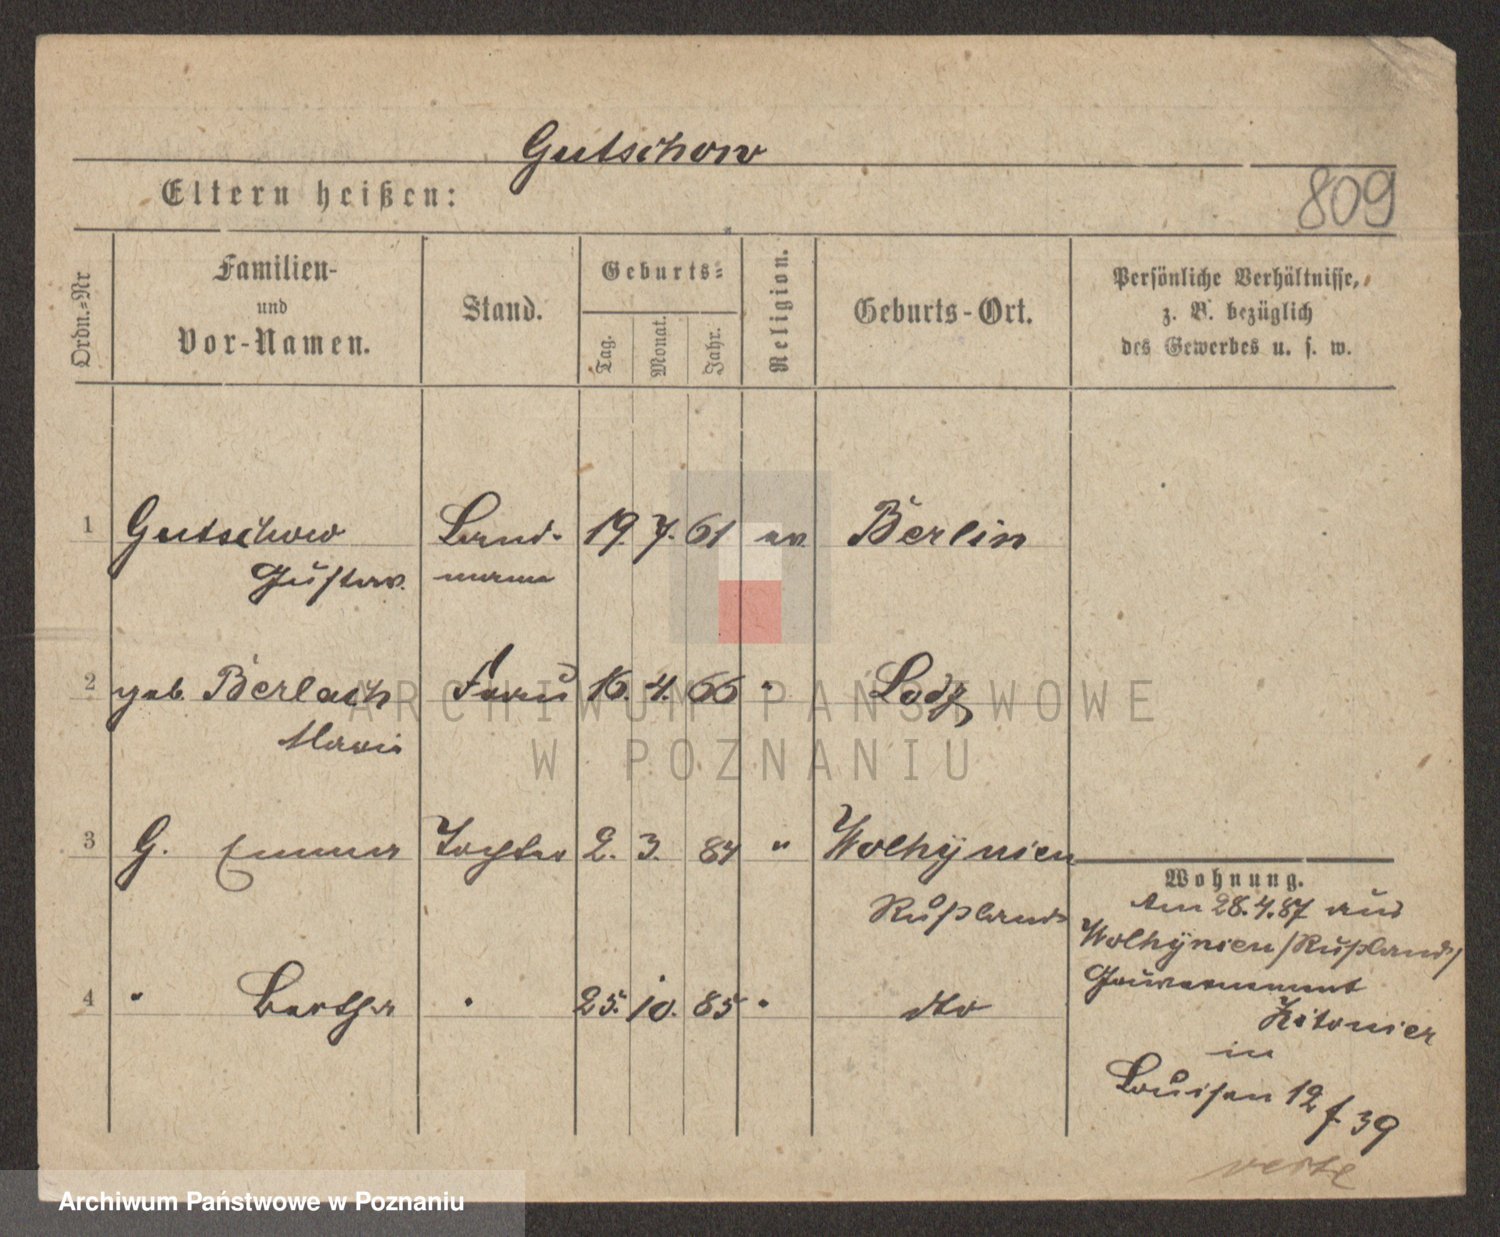 Gutschow
Eltern heißen:
809
Ordn.-Nr
Familien-
und
Vor-Namen.
Stand.
Geburts-
Tag.
Monat.
Jahr.
Religion.
Geburts-Ort.
Persönliche Verhältnisse,
z. B. bezüglich
des Gewerbes u. s. w.
1 Gutschow Land- 19. 7. 61 ev. Berlin
Gustav mann
2 geb. Berlach Frau 16. 4. 66 " Lodz
Marie
ARCHIWUM PAŃSTWOWE
W POZNANIU
3 G. Emma Tochter 2. 3. 84 " Wolhynien
Rußland
4 " Bertha " 25. 10. 85 " dto
Wohnung.
Am 28.4.87 aus
Wolhynien/Rußland/
Gouvernement
in
Louisen 12 f 39
verte
Archiwum Państwowe w Poznaniu